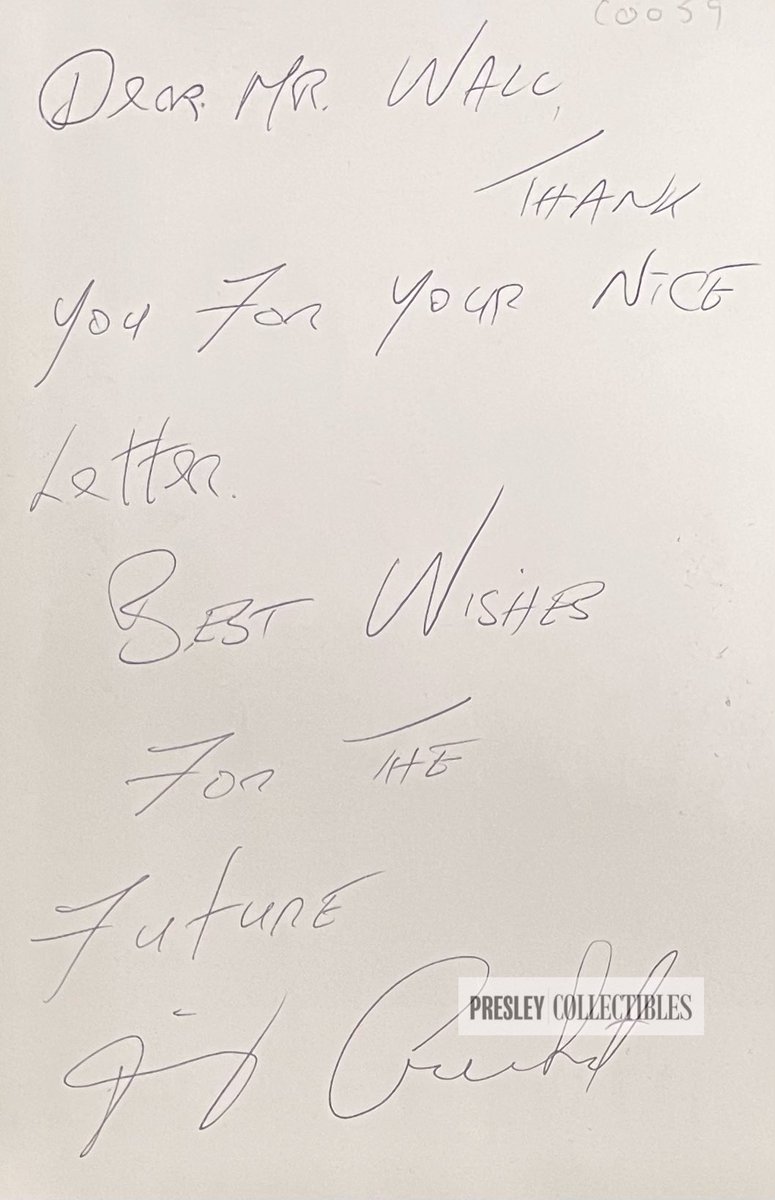 C0059
DeaR. MR. WALL,
THANK
you FoR YOUR NiCE
LetteR.
BEST WISHES
FoR THE
FutuRE
PRESLEY COLLECTIBLES